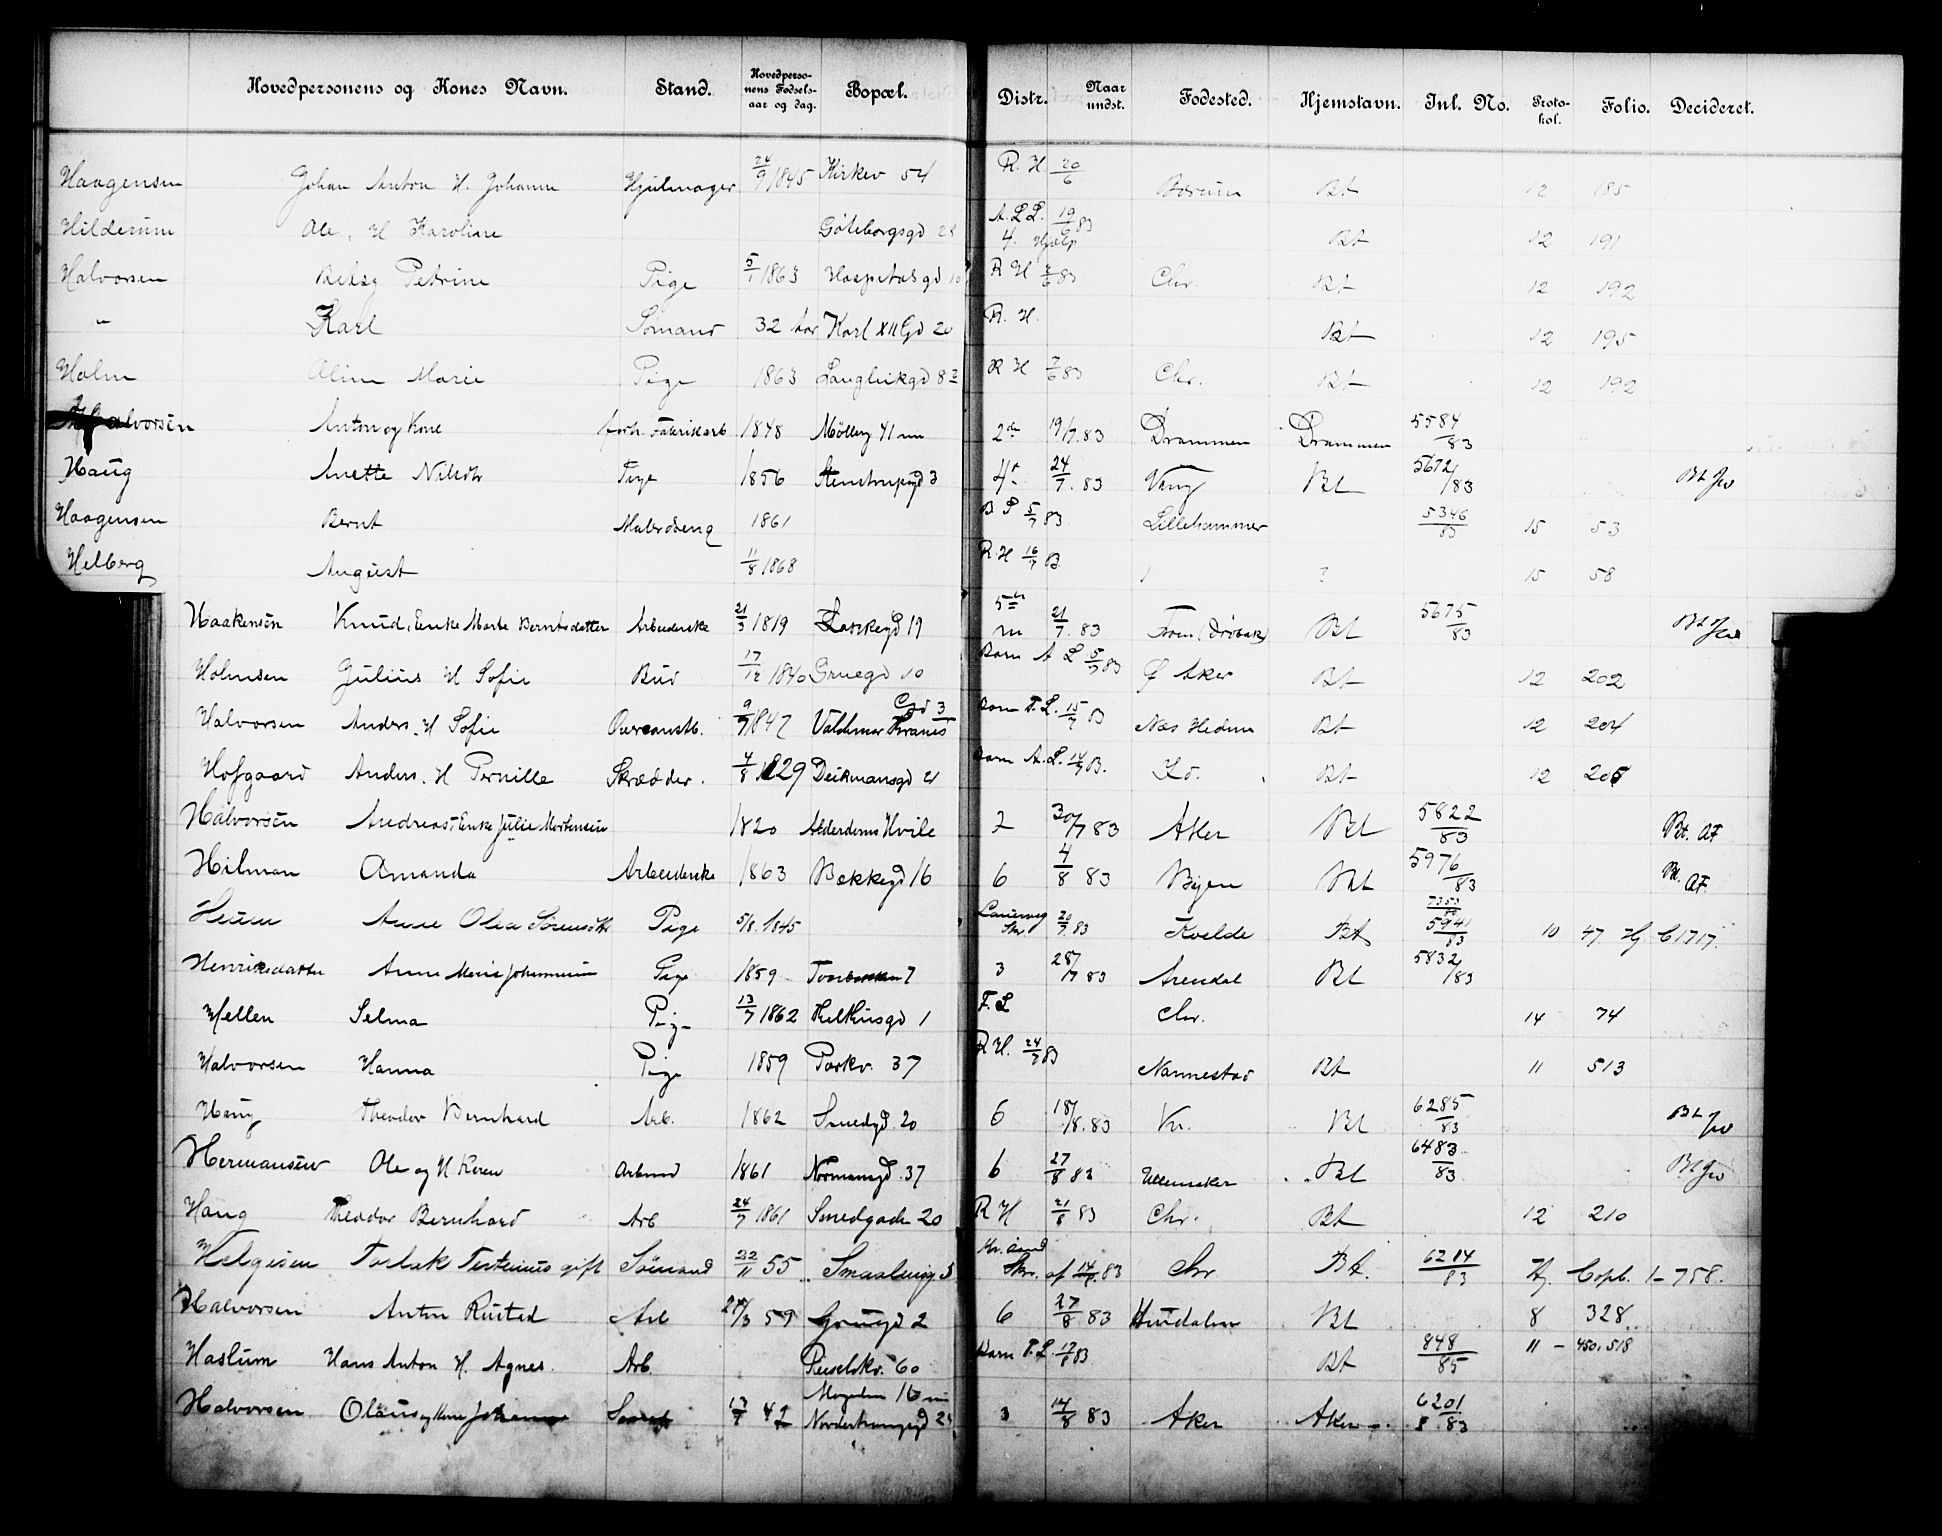 Hovedpersonens og Kones Navn. Stand. Hovedpersonens Fødselsaar og dag. Bopæl. Distr. Naar undst. Fødested. Hjemstavn. Inl. No. Protokol. Folio. Decideret.
Haagensen Johan Anton H. Johanne Hjulmager 24/9 1845 Kirkev 54 R. H. 20/6 Bærum Bt 12 185
Hilderum Ole, H Karoline Göteborgsgd 28 A. L L. 19/6 83 4. Hjælp Bt 12 191
Halvorsen Betsy Petrine Pige 5/1 1863 Hospitalsgd 10 R H 2/6 83 Chr. Bt 12 192
" Karl Sømand 32 Aar Karl XII Gd 20 R. H. Bt 12 195
Holm Aline Marie Pige 1863 Langleikgd 8 R H 7/6 83 Chr. Bt 12 192
Halvorsen Anton og Kone forh. Fabrikarb 1848 Møllerg 41 2de 19/7.83 Drammen Drammen 5584/83
Haug Anette Nilsdtr Pige 1856 Stenstrupgd 3 4 24/7.83 Vang Bt 5672/83 Bt
Haagensen Bernt Malerdreng 1861 B S 5/7 83 Lillehammer 5346/83 15 53
Helberg August 11/8 1868 R. H 16/7 83 ? 15 58
Haakensen Knud, Enke Marte Berntsdatter Arbeiderske 21/3 1819 Lakkegd 19 5te 21/7.83 From (Drøbak) Bt 5675/83 Bt
Holmsen Julius H Sofie Bud 17/12 1840 Gruegd 10 Barn A L 5/7 83 Ø Aker Bt 12 202
Halvorsen Anders. H Sofie Overconstb. 9/7 1847 Valdemar Thranes Gd 3 Barn F. L. 15/7 83 Næs Hedem Bt 12 204
Hofgaard Anders. H Pernille Skrædder. 4/8 1829 Deikmansgd 21 Barn A. L. 14/7 83. Bt 12 205
Halvorsen Andreas, Enke Julie Mortensen 1820 Alderdoms Hvile 2 30/7 83 Aker Bt 5822/83 Bt. AF
Hilman Amanda Arbeiderske 1863 Bekkegd 16 6 4/8 83 Byen Bt 5976/83 Bt. AF.
Anne Olea Sørensdtr Pige 5/8. 1845 Laurvig Skr. 20/7.83 Kvelde Bt 7353/80 5941/83 10 47. Hj C1717.
Henriksdatter Anne Marie Johannesen Pige 1859 7 3 28/7 83 Arendal Bt 5832/83
Hellen Selma Pige 13/7 1862 Helkusgd 1 F. L Chr. 14 74
Halvorsen Hanna Pige 1859 Parkv. 37 R H. 24/7 83 Nannestad Bt 11 513
Haug Theodor Bernhard Arb. 1862 Smedgd. 20 6 18/8.83 Kr. Bt 6285/83 Bt
Hermansen Ole og H Karen Arbmd 1861 Normansgd. 37 6 27/8 83 Ullensaker Bt 6483/83 Bt
Haug Theodor Bernhard Arb 24/7 1861 Smedgade 20 R H 21/8 83 Chr. Bt 12 210
Helgesen Torlak gift Sömand 22/11 55 Smaalensg 5 Kr. sand Skr. af 14/8.83 Chr Bt. 6214/83 Hj. Copb. 1-758.
Halvorsen Anton Rusted Arb 27/3 59 Gruegd 2 6 27/8 83 Hurdalen Bt 8 328
Haslum Hans Anton H. Agnes. Arb. 60 Barn F. L. 17/8 83 Bt 848/85 11 - 450. 518
Halvorsen Olaus og Kone Johanne 17/7 42 16 24 3 14/8 83 Aker Aker 6201/8.83